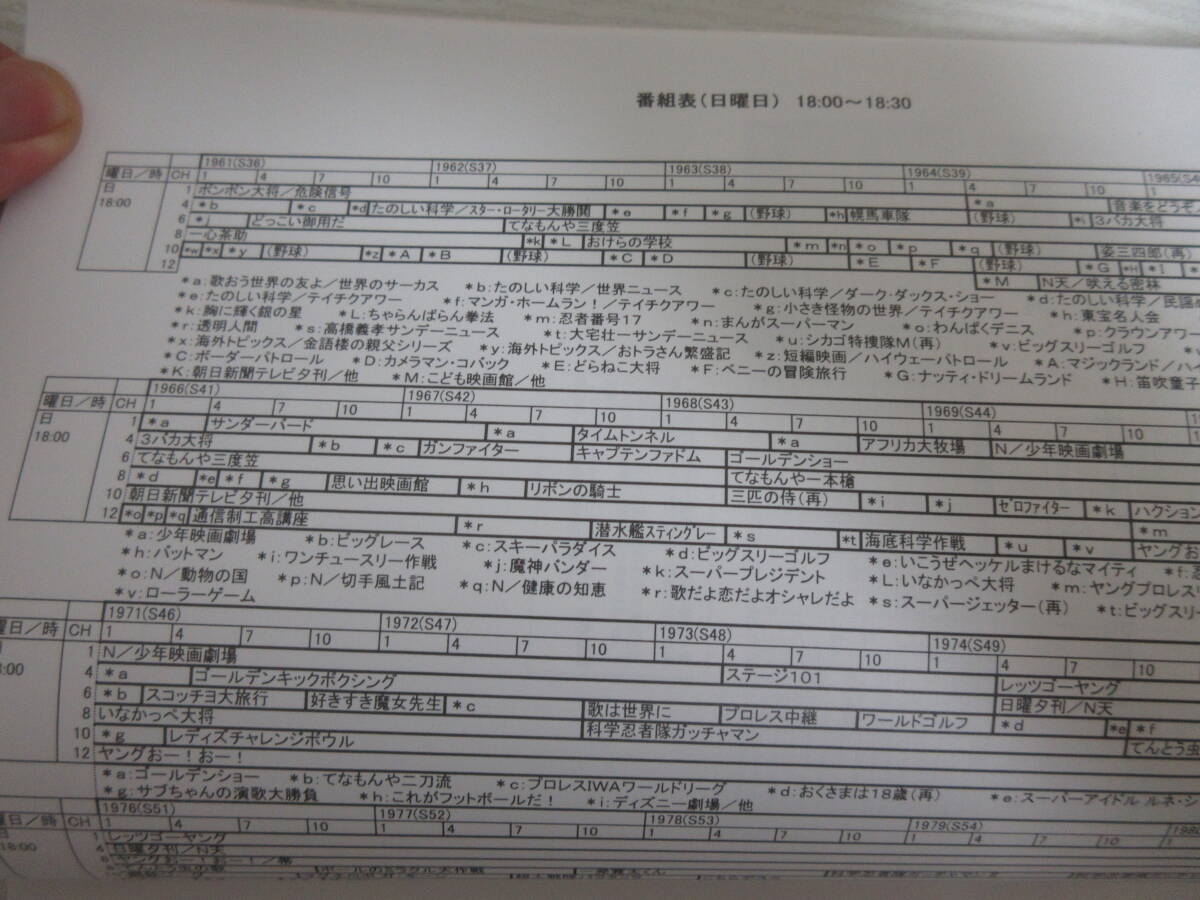 番組表(日曜日) 18:00～18:30
1961(S36) 1962(S37) 1963(S38) 1964(S39)
曜日／時 CH 1 4 7 10 1 4 7 10 1 4 7 10 1 4 7 10 1
日 18:00
1 ポンポン大将／危険信号 *a 音楽をどうぞ
4 *b *c *d たのしい科学／スター・ロータリー大勝問 *e *f *g (野球) *h 幌馬車隊 (野球) *i 3バカ大将
6 *j どっこい御用だ てなもんや三度笠
8 一心茶助 *k *L おけらの学校 *m *n *o *p *q (野球) 姿三四郎(再)
10 *w *x *y (野球) *z *A *B (野球) *C *D (野球) *E *F (野球) *G *H *I
12 *M N天／吠える密林
*a:歌おう世界の友よ／世界のサーカス *b:たのしい科学／世界ニュース *c:たのしい科学／ダーク・ダックス・ショー *d:たのしい科学／民謡
*e:たのしい科学／テイチクアワー *f:マンガ・ホームラン！／テイチクアワー *g:小さき怪物の世界／テイチクアワー *h:東宝名人会
*k:胸に輝く銀の星 *L:ちゃらんぱらん拳法 *m:忍者番号17 *n:まんがスーパーマン *o:わんぱくデニス *p:クラウンアワー
*r:透明人間 *s:高橋義孝サンデーニュース *t:大宅壮一サンデーニュース *u:シカゴ特捜隊M(再) *v:ビッグスリーゴルフ
*x:海外トピックス／金語楼の親父シリーズ *y:海外トピックス／おトラさん繁盛記 *z:短編映画／ハイウェーパトロール *A:マジックランド／ハイ
*C:ボーダーパトロール *D:カメラマン・コバック *E:どらねこ大将 *F:ベニーの冒険旅行 *G:ナッティ・ドリームランド *H:笛吹童子
*K:朝日新聞テレビ夕刊／他 *M:こども映画館／他
1966(S41) 1967(S42) 1968(S43) 1969(S44)
曜日／時 CH 1 4 7 10 1 4 7 10 1 4 7 10 1 4 7 10
日 18:00
1 *a サンダーバード *a タイムトンネル *a アフリカ大牧場 N／少年映画劇場
4 3バカ大将 *b *c ガンファイター キャプテンファドム ゴールデンショー
6 てなもんや三度笠 てなもんや一本槍
8 *d *e *f *g 思い出映画館 *h リボンの騎士 三匹の侍(再) *i *j ゼロファイター *k ハクション
10 朝日新聞テレビ夕刊／他 *m
12 *o *p *q 通信制工高講座 *r 潜水艦スティングレー *s *t 海底科学作戦 *u *v ヤングお
*a:少年映画劇場 *b:ビッグレース *c:スキーパラダイス *d:ビッグスリーゴルフ *e:いこうぜヘッケルまけるなマイティ
*h:バットマン *i:ワンチュースリー作戦 *j:魔神バンダー *k:スーパープレジデント *L:いなかっぺ大将 *m:ヤングプロレス
*o:N／動物の国 *p:N／切手風土記 *q:N／健康の知恵 *r:歌だよ恋だよオシャレだよ *s:スーパージェッター(再) *t:ビッグスリ
*v:ローラーゲーム
1971(S46) 1972(S47) 1973(S48) 1974(S49)
曜日／時 CH 1 4 7 10 1 4 7 10 1 4 7 10 1 4 7 10
1 N／少年映画劇場 レッツゴーヤング
4 *a ゴールデンキックボクシング ステージ101 日曜夕刊／N天
6 *b スコッチヨ大旅行 好きすき魔女先生 *c 歌は世界に プロレス中継 ワールドゴルフ *d *e *f
8 いなかっぺ大将 科学忍者隊ガッチャマン てんとう虫
10 *g レディズチャレンジボウル
12 ヤングおー！おー！
*a:ゴールデンショー *b:てなもんや二刀流 *c:プロレスIWAワールドリーグ *d:おくさまは18歳(再) *e:スーパーアイドル ルネ・シ
*g:サブちゃんの演歌大勝負 *h:これがフットボールだ！ *i:ディズニー劇場／他
1976(S51) 1977(S52) 1978(S53) 1979(S54)
曜日／時 CH 1 4 7 10 1 4 7 10 1 4 7 10 1 4 7 10
日 18:00
1 レッツゴーヤング
4 日曜夕刊／N天
6 ヤングおー！おー！